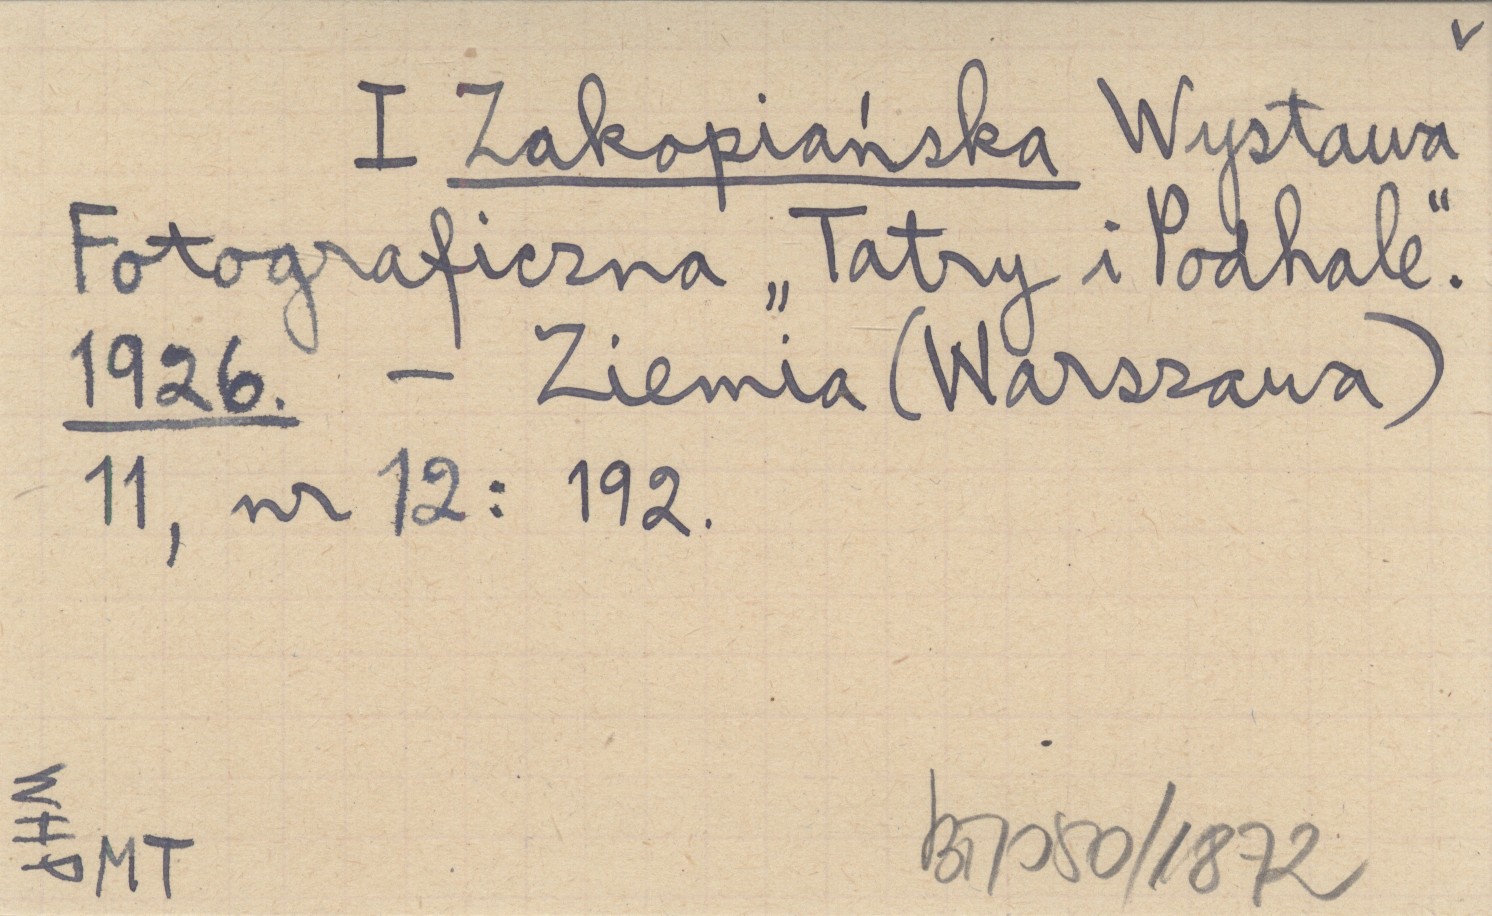 I Zakopiańska Wystawa
Fotograficzna „Tatry i Podhale“.
1926. – Ziemia (Warszawa)
11, nr 12: 192.
WHP
MT
/1872